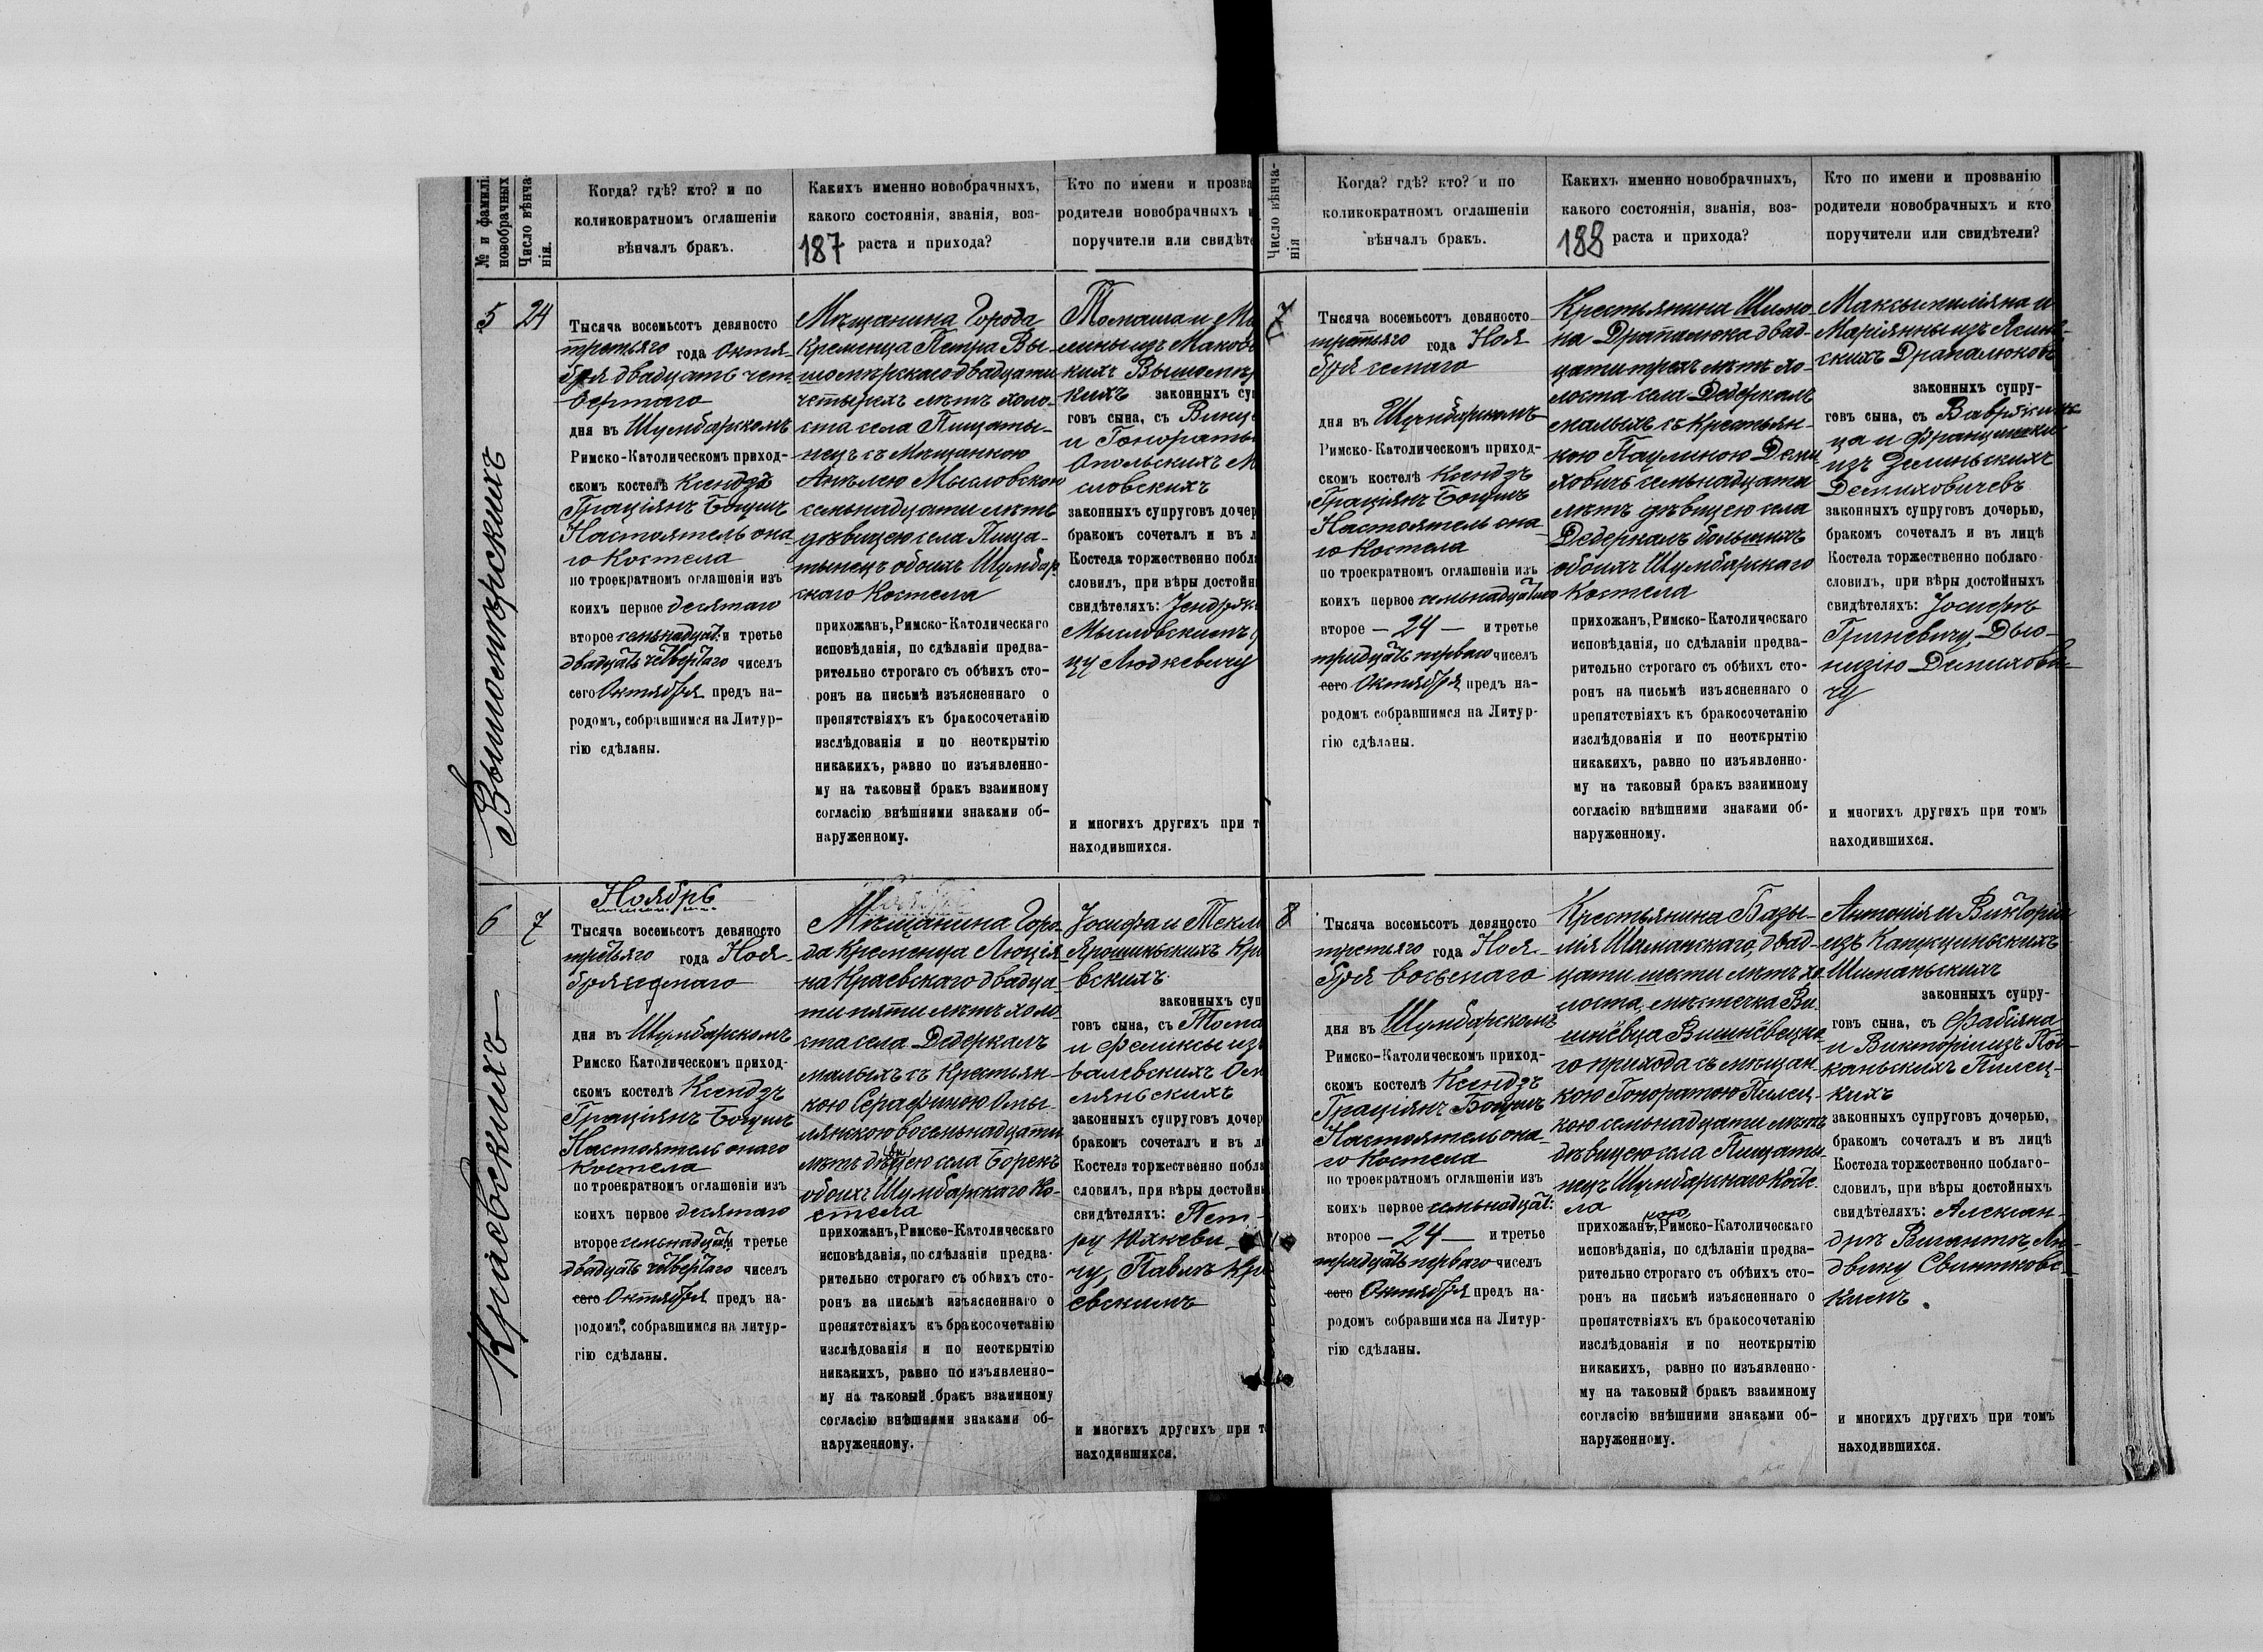 № и фамилі.
новобрачныхъ
Число вѣнча-
нія.
Когда? гдѣ? кто? и по
коликократномъ оглашеніи
вѣнчалъ бракъ.
Какихъ именно новобрачныхъ,
какого состоянія, званія, воз-
раста и прихода?
187
Кто по имени и прозва
родители новобрачныхъ
поручители или свидѣте
5
24
Вышомѣрскихъ
Тысяча восемьсотъ девяносто
третьяго года Октя-
бря двадцать чет-
вертаго
дня въ Шумбарскомъ
Римско-Католическомъ приход-
скомъ костелѣ Ксендзъ
Граціянъ
Настоятель она-
го Костела
по троекратномъ оглашеніи изъ
коихъ первое десятаго
второе семьнадцат. и третье
двадцать четвертаго чиселъ
сего Октября предъ на-
родомъ, собравшимся на Литур-
гію сдѣланы.
Мѣщанина Города
Кременца Петра Вы-
шомѣрскаго двадцати
четырехъ лѣтъ холо-
ста села Пищаты-
нецъ съ Мѣщанкою
Анѣлею Мысловскою
семьнадцати лѣтъ
дѣвицею села Пища-
тынецъ обоихъ Шумбар-
скаго Костела
прихожанъ, Римско-Католическаго
исповѣданія, по сдѣланіи предва-
рительно строгаго съ обѣихъ сто-
ронъ на письмѣ изъясненнаго о
препятствіяхъ къ бракосочетанію
изслѣдованія и по неоткрытію
никакихъ, равно по изъявленно-
му на таковый бракъ взаимному
согласію внѣшними знаками об-
наруженному.
Томаша и
изъ Маковс
кихъ Вышомѣр
кихъ законныхъ суп
говъ сына, съ Винце
и Гонораты
Опольскихъ М
словскихъ
законныхъ супруговъ дочер
бракомъ сочеталъ и въ л
Костела торжественно побла
словилъ, при вѣры достойн
свидѣтеляхъ: Іендрж
Мысловскимъ
цу Людкевичу
и многихъ другихъ при т
находившихся.
6
7
Краевскихъ
Ноябрь
Тысяча восемьсотъ девяносто
третьяго года Ноя-
бря седмаго
дня въ Шумбарскомъ
Римско Католическомъ приход-
скомъ костелѣ Ксендзъ
Граціянъ
Настоятель онаго
Костела
по троекратномъ оглашеніи изъ
коихъ первое десятаго
второе семьнадцат. и третье
двадцать четвертаго чиселъ
сего Октября предъ на-
родомъ, собравшимся на литур-
гію сдѣланы.
Мѣщанина Горо-
да Кременца Люція-
на Краевскаго двадца-
ти пяти лѣтъ холо-
ста села Дедеркалъ
малыхъ съ Крестьян-
кою Серафиною Омы-
лянскою восемьнадцати
лѣтъ дѣвицею села Борекъ
обоихъ Шумбарскаго Ко-
стела
прихожанъ, Римско-Католическаго
исповѣданія, по сдѣланіи предва-
рительно строгаго съ обѣихъ сто-
ронъ на письмѣ изъясненнаго о
препятствіяхъ къ бракосочетанію
изслѣдованія и по неоткрытію
никакихъ, равно по изъявленно-
му на таковый бракъ взаимному
согласію внѣшними знаками об-
наруженному.
Іосифа и Текли
Ярошинскихъ Кра
вскихъ
законныхъ суп
говъ сына, съ Тома
и Феликсы изъ
валевскихъ Ом
лянскихъ
законныхъ супруговъ дочер
бракомъ сочеталъ и въ л
Костела торжественно побла
словилъ, при вѣры достойн
свидѣтеляхъ: Пет-
ру Юхневи-
чу, Павлѣ Кра
евскимъ
и многихъ другихъ при т
находившихся.
Число вѣнча-
нія
Когда? гдѣ? кто? и по
коликократномъ оглашеніи
вѣнчалъ бракъ.
Какихъ именно новобрачныхъ,
какого состоянія, званія, воз-
раста и прихода?
188
Кто по имени и прозванію
родители новобрачныхъ и кто
поручители или свидѣтели?
7
Тысяча восемьсотъ девяносто
третьяго года Ноя
бря семаго
дня въ Шумбарскомъ
Римско-Католическомъ приход-
скомъ костелѣ Ксендзъ
Граціянъ
Настоятель она-
го Костела
по троекратномъ оглашеніи изъ
коихъ первое семьнадцатаго
второе — 24 — и третье
тридцать перваго чиселъ
сего Октября предъ на-
родомъ собравшимся на Литур-
гію сдѣланы.
Крестьянина Шимо-
на Драпалюка двад-
цати трехъ лѣтъ хо-
лоста села Дедеркалъ
малыхъ съ Крестьян-
кою Паулиною Деми-
ховичъ семьнадцати
лѣтъ дѣвицею села
Дедеркалъ большихъ
обоихъ Шумбарскаго
Костела
прихожанъ, Римско-Католическаго
исповѣданія, по сдѣланіи предва-
рительно строгаго съ обѣихъ сто-
ронъ на письмѣ изъясненнаго о
препятствіяхъ къ бракосочетанію
изслѣдованія и по неоткрытію
никакихъ, равно по изъявленно-
му на таковый бракъ взаимному
согласію внѣшними знаками об-
наруженному.
Максымиліяна и
Маріянны изъ Ясин-
скихъ Драпалюковъ
законныхъ супру-
говъ сына, съ Вавржинь-
ца и Францишки
изъ Зелинскихъ
Демиховичевъ
законныхъ супруговъ дочерью,
бракомъ сочеталъ и въ лицѣ
Костела торжественно поблаго-
словилъ, при вѣры достойныхъ
свидѣтеляхъ: Іосифъ
Гриневичу, Діо-
низію Демихови-
чу
и многихъ другихъ при томъ
находившихся.
8
Тысяча восемьсотъ девяносто
третьяго года Ноя-
бря восьмаго
дня въ Шумбарскомъ
Римско-Католическомъ приход-
скомъ костелѣ Ксендзъ
Граціянъ
Настоятель она-
го Костела
по троекратномъ оглашеніи изъ
коихъ первое семьнадцат:
второе — 24 — и третье
тридцать перваго чиселъ
сего Октября предъ на-
родомъ собравшимся на Литур-
гію сдѣланы.
Крестьянина Базы-
лія Шиманскаго, двад-
цати шести лѣтъ хо-
лоста, мѣстечка Ви-
шнёвца Вишнёвецка-
го прихода съ мѣщан-
кою Гоноратою Пилец-
кою семьнадцати лѣтъ
дѣвицею села Пищаты-
нецъ Шумбарскаго Косте-
ла
прихожанъ, Римско-Католическаго
исповѣданія, по сдѣланіи предва-
рительно строгаго съ обѣихъ сто-
ронъ на письмѣ изъясненнаго о
препятствіяхъ къ бракосочетанію
изслѣдованія и по неоткрытію
никакихъ, равно по изъявленно-
му на таковый бракъ взаимному
согласію внѣшними знаками об-
наруженному.
Антонія и Викторіи
изъ Капуциньскихъ
Шиманьскихъ
законныхъ супру-
говъ сына, съ Фабіяна
и Викторіи изъ
каньскихъ Пилец-
кихъ
законныхъ супруговъ дочерью,
бракомъ сочеталъ и въ лицѣ
Костела торжественно поблаго-
словилъ, при вѣры достойныхъ
свидѣтеляхъ: Алексан-
дръ Вигантъ, Лю-
двику Свинтковс-
кимъ.
и многихъ другихъ при томъ
находившихся.